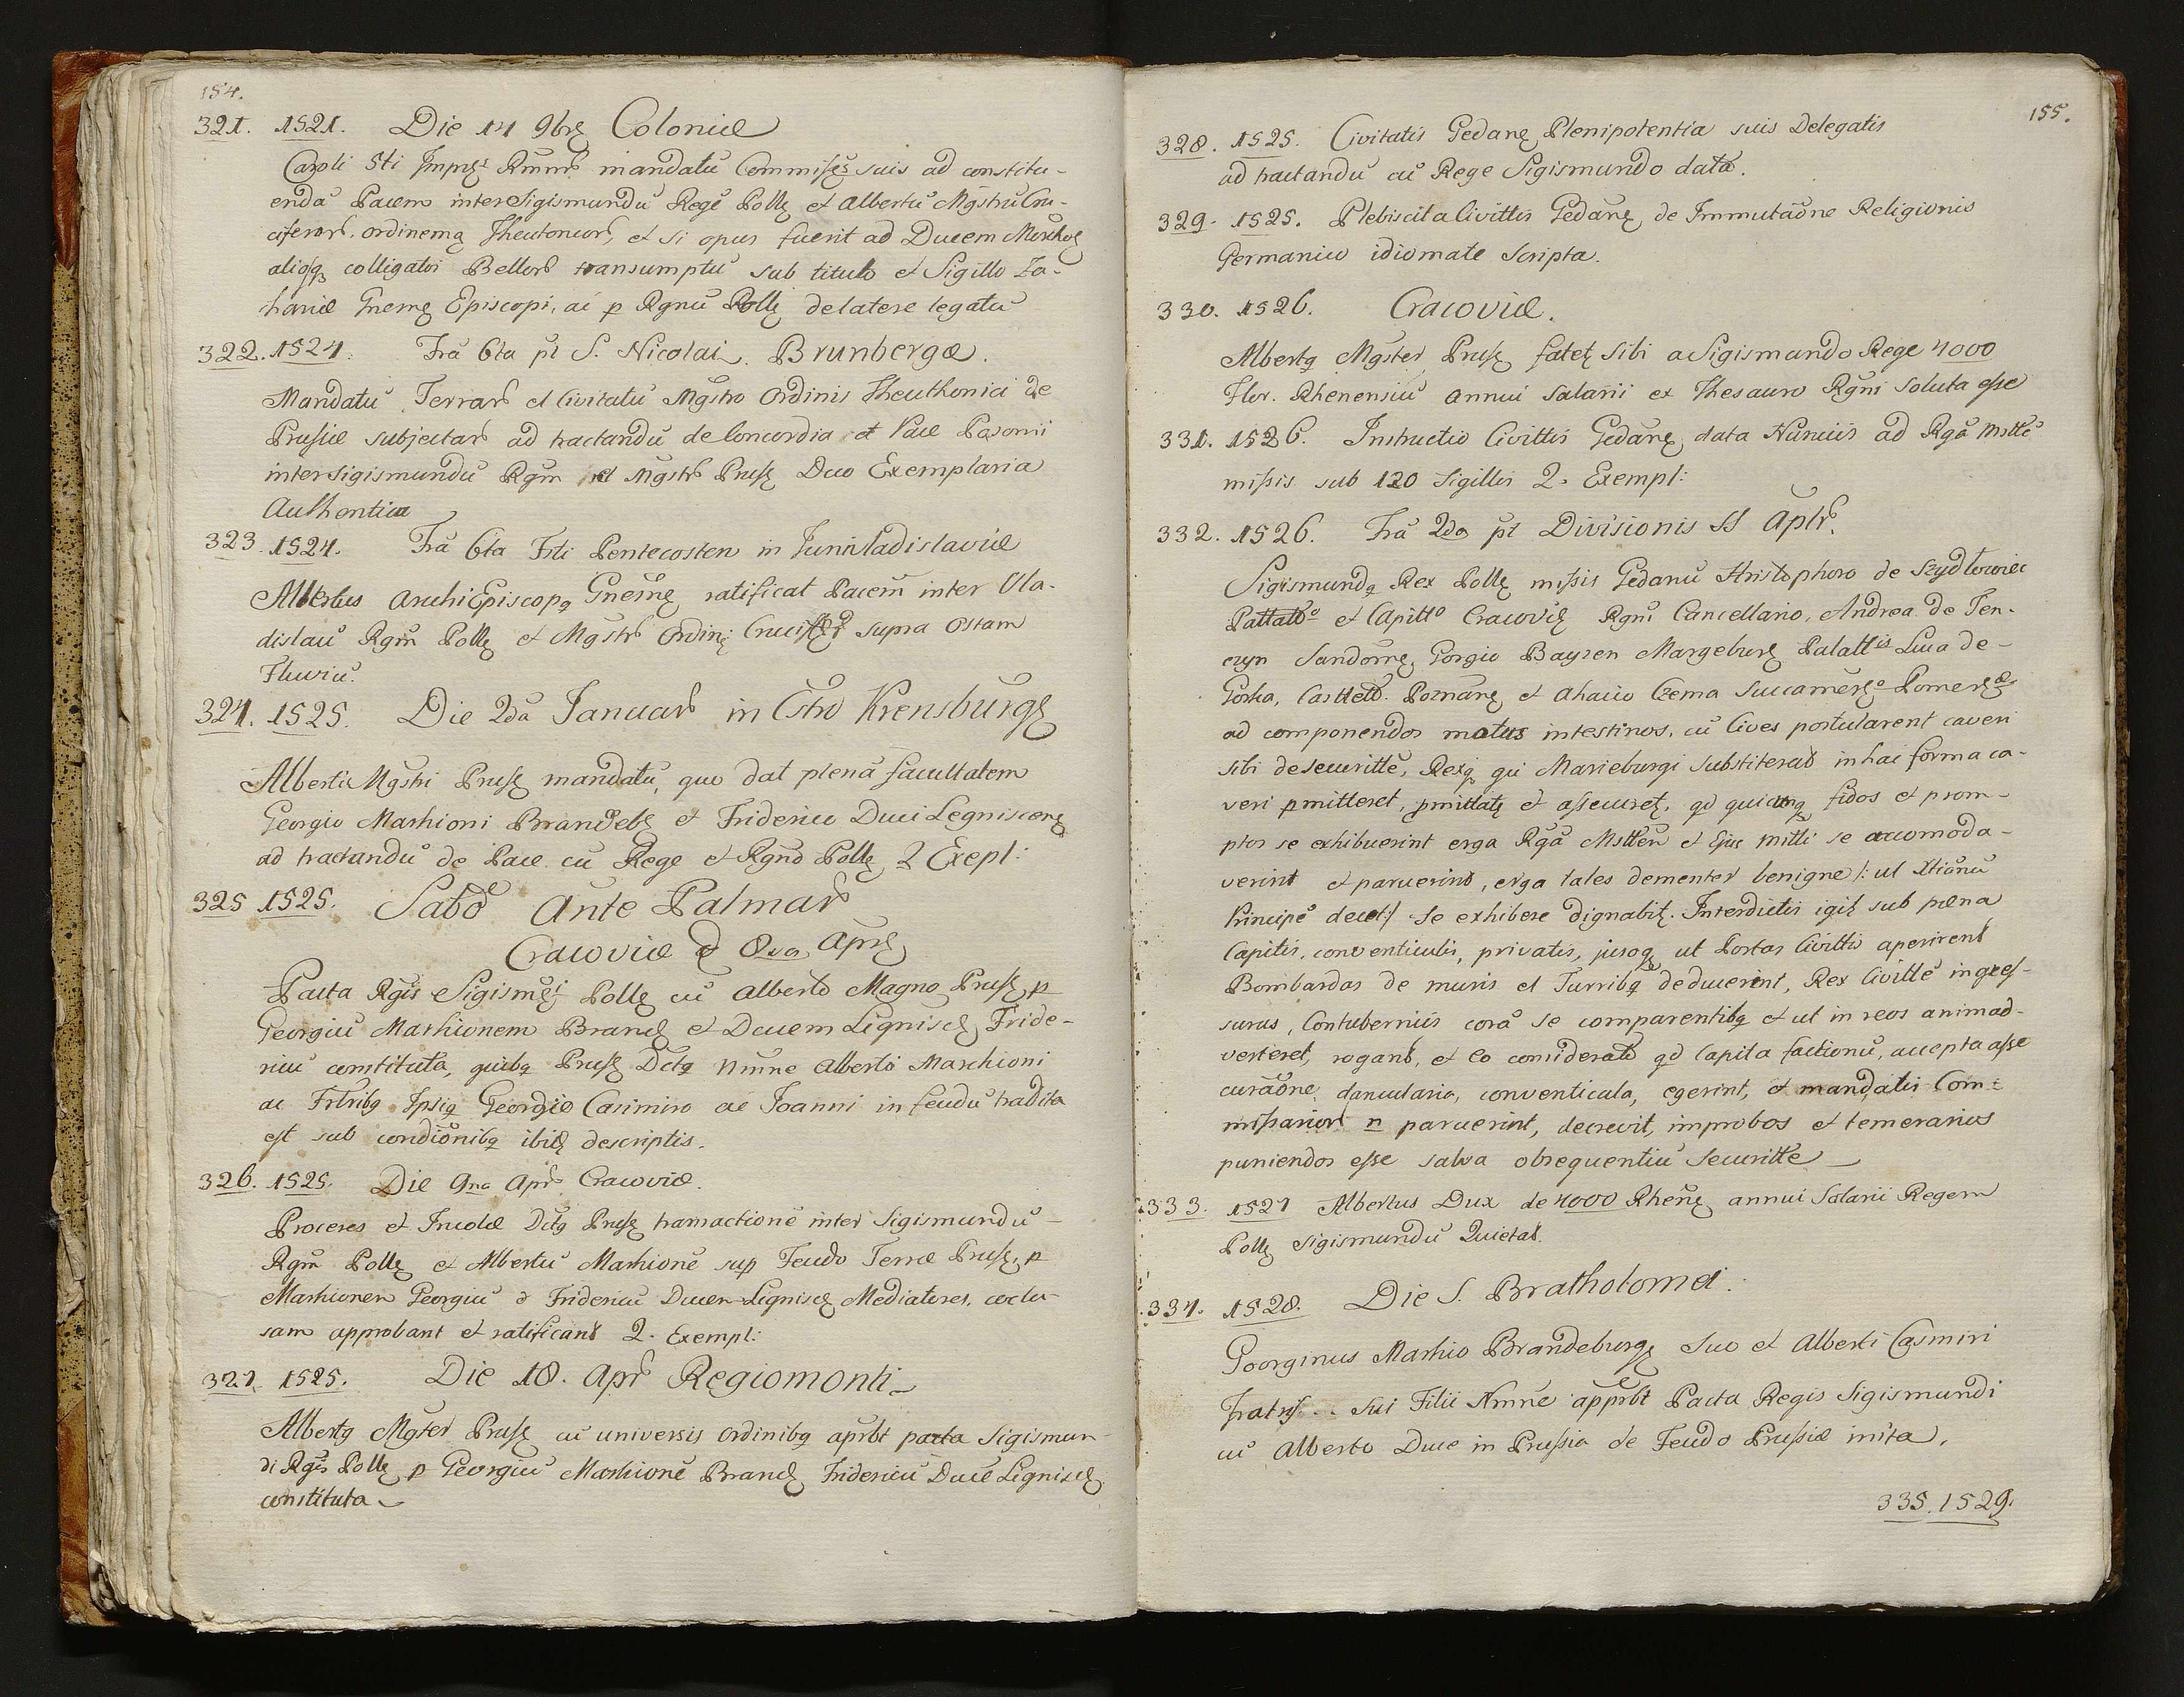 154.
321. 1521. Die 14 9brę Coloniæ
Caroli 5ti Impręs Rmnr mandatū Commissęs suis ad constitu-
endā Pacem inter Sigismundū Regē Pollę et Albertū Mgstrū Cru-
ciferor, ordinemq Theutonicor, et si opus fuerit ad Ducem Moschoę
aliosq colligatos Bellor transumptū sub titulo et Sigillo Za-
hariæ Gnemę Episcopi, ac p Rgnū Pollę de latere legatū
322. 1524. Frā 6ta pt S. Nicolai. Brunbergæ.
Mandatū Terrar et Civitatū Mgstro Ordinis Theuthonici de
Prussiæ subjectar ad tractandū de Concordia et Pace
inter Sigismundū Rgm et Mgstr Prusę Duo Exemplaria
Authentica
323. 1524. Frā 6ta Fsti Pentecosten in Junivladislaviæ
Albertus ArchiEpiscopq Gnesnę ratificat Pacem inter Vla-
dislaū Rgm Pollę et Mgstr Ordinę supra Ossam
Fluviū.
324. 1525. Die 2dā Januar in Cstro Krensburgę
Alberti Mgstri Prusę mandatū, quo dat plenā facultatem
Georgio Marhioni Brandebę et Friderico Duci Legnicenę
ad tractandū de Pace cū Rege et Rgno Pollę 2 Exepl:
325 1525. Sabō Ante Palmar
Cracoviæ d 8va Aprę
Pacta Rgis Sigismęi Pollę cū Alberto Magno Prusę p
Georgiū Marhionem Brandę et Ducem Ligniscę Fride-
ricū constituta, quibq Prusę Dctq Nmne Alberto Marchioni
ac Frtribq Ipsiq Georgio Casimiro ac Joanni in feudū tradita
est sub condiōnibq ibidę descriptis.
326. 1525. Die 9na Apr Cracoviæ.
Proceres et Incolæ Dctq Prusę transactionē inter Sigismundū
Rgm Pollę et Albertū Marhionē sup Feudo Terræ Prusę, p
Marhionen Georgiū d Fridericū Ducen Lignisę Mediatores, coclu-
sam approbant et ratificant 2. Exempl:
327. 1525. Die 18. Apr Regiomonti
Albertq Mgster Prusę cū universis Ordinibq aprbt pacta Sigismun-
di Rgis Pollę p Georgiū Marhionē Brandę Fridericū Ducē Ligniscę
constituta
155.
328. 1525. Civitatis Gedanę Plenipotentia suis Delegatis
ad tractandū cū Rege Sigismundo data.
329. 1525. Plebiscita Civittis Gedanę de Immutaōne Religionis
Germanico idiomate scripta.
330. 1526. Cracoviæ.
Albertq Mgster Prusę fatetę sibi a Sigismundo Rege 4000
Flor. Rhenensiū annui Salarii ex Thesauro Rgni soluta esse
331. 1526. Instructio Civittis Gedanę data Nunciis ad Rgā Msttē
missis sub 120 Sigillis 2. Exempl:
332. 1526. Frā 2da pt Divisionis SS Aplr.
Sigismundq Rex Pollę missis Gedanū Hristophoro de Szydlowiec
Pattato et Capitto Cracovię Rgni Cancellario, Andrea de Ten-
czyn Sandomę, Gorgio Baysen Margeburę Palattis Luca de-
Gorka, Casttelo. Poznanę et Ahacio Czema Succameręo Pomerę
ad componendos motus intestinos, cū Cives postularent caveri
sibi de securitte, Rexq qui Marieburgi substiterat in hac forma ca-
veri pmitteret, pmittatę et assecuret, qd quicunq fidos et prom-
ptos se exhibuerint erga Rgā Msttēn et Ejus mitti se accomoda-
verint et paruerint, erga tales clementer benigne /: ut Xtianū
Principē decet :/ se exhibere dignabitę. Interdictis igitę sub pœna
Capitis, conventiculis, privatis, jusoq ut Portas Civittis aperirent
Bombardas de muris et Turribq deducerent, Rex Civittē ingres-
surus, Contuberniis corā se comparentibq et ut in reos animad-
verteret, rogant, et Eo considerato qd Capita factionū, accepta asse
curaōne, clancularia, conventicula, egerint, et mandatis Com-
missarior n paruerint, decrevit, improbos et temerarios
puniendos esse salva obsequentiū securitte
333. 1527 Albertus Dux de 4000 Rhenę annui Salarii Regem
Pollę Sigismundū Quietat.
334. 1528. Die S. Bratholomei.
Goorginus Marhio Brandeburgę suo et Alberti Casmiri
fratris .. sui Filii Nmne apprbt Pacta Regis Sigismundi
cū Alberto Duce in Prussia de Feudo Prussiæ inita.
335. 1529.